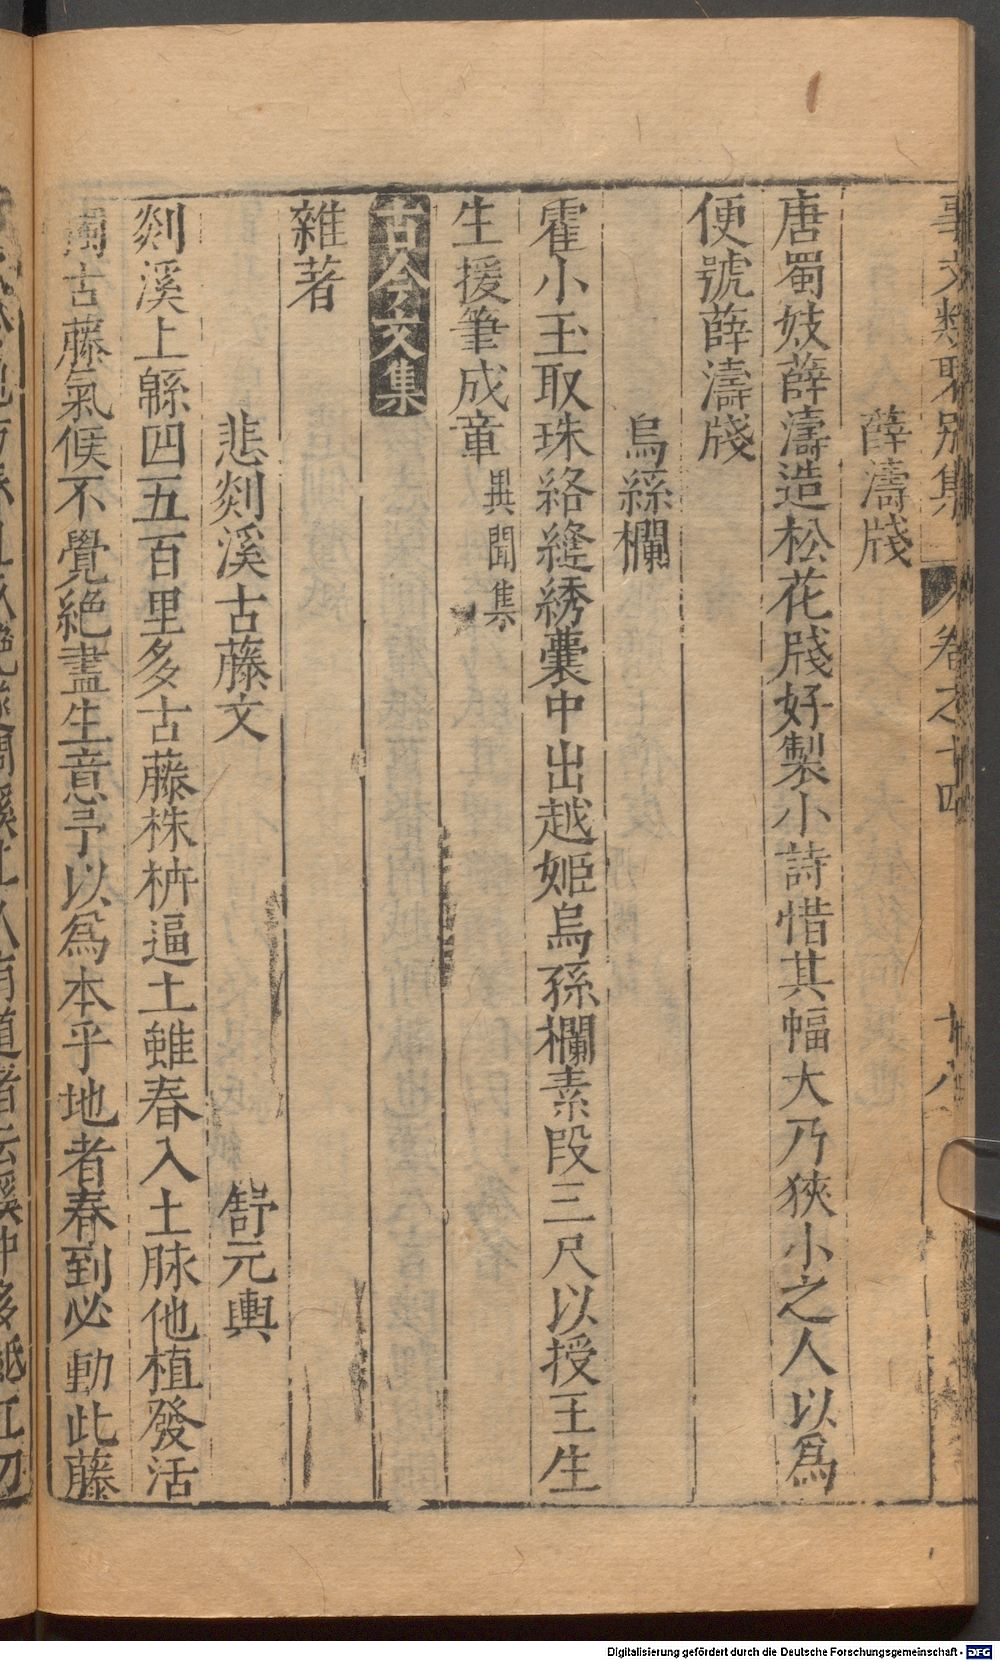 事文類聚別集 卷之十四 十八
薛濤牋
唐蜀妓薛濤造松花牋好製小詩惜其幅大乃狹小之人以爲
便號薛濤牋
烏絲欄
霍小玉取珠絡縫綉囊中出越姬烏孫欄素段三尺以授王生
生援筆成章 異聞集
古今文集
雜著
悲剡溪古藤文 舒元輿
剡溪上緜四五百里多古藤株枿逼土雖春入土脉他植發活
獨古藤氣候不覺絕盡生意予以爲本乎地者春到必動此藤
Digitalisierung gefördert durch die Deutsche Forschungsgemeinschaft - DFG